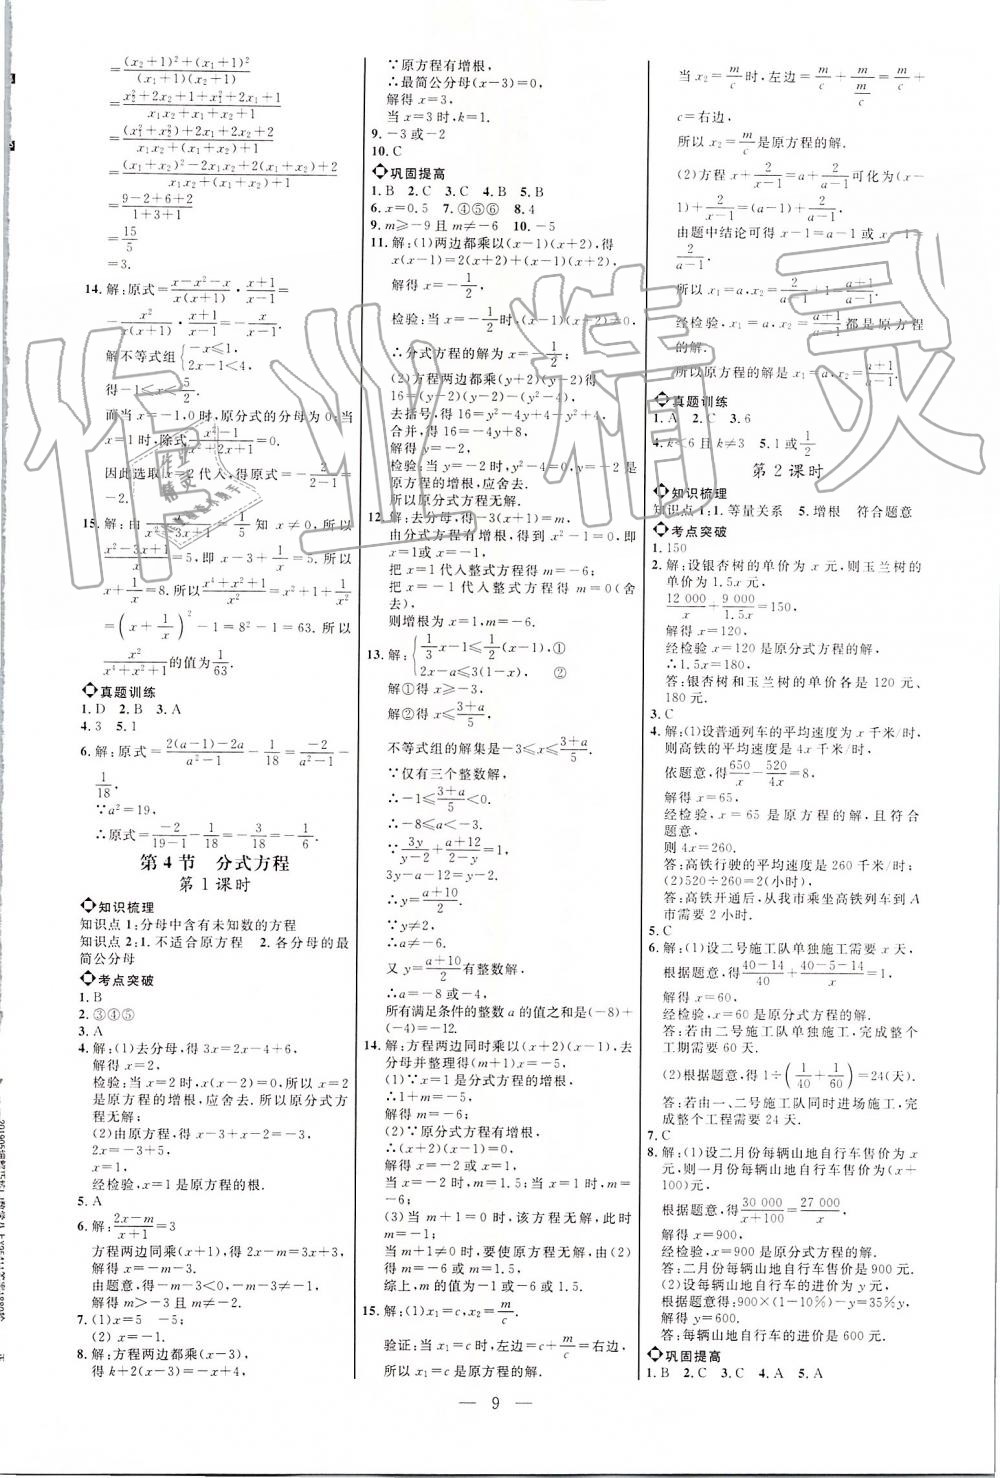 =\frac{(x_2+1)^2+(x_1+1)^2}{(x_1+1)(x_2+1)}
=\frac{x_2^2+2x_2+1+x_1^2+2x_1+1}{x_1x_2+x_1+x_2+1}
=\frac{(x_1^2+x_2^2)+2x_1+2x_2+2}{x_1x_2+(x_1+x_2)+1}
=\frac{(x_1+x_2)^2-2x_1x_2+2(x_1+x_2)+2}{x_1x_2+(x_1+x_2)+1}
=\frac{9-2+6+2}{1+3+1}
=\frac{15}{5}
=3.
14. 解:原式=\frac{x-x^2-x}{x(x+1)}·\frac{x+1}{x-1}=
-\frac{x^2}{x(x+1)}·\frac{x+1}{x-1}=-\frac{x}{x-1}.
解不等式组{-x≤1, 2x-1<4,
得-1≤x<\frac{5}{2}.
而当 x=-1,0时,原分式的分母为0;当
x=1时,除式\frac{x^2-1}{x^2+2x+1}=0.
因此选取 x=2代入,得原式=-\frac{2}{2-1}=
-2.
15. 解:由\frac{x}{x^2-3x+1}=\frac{1}{5}知 x≠0,所以
\frac{x^2-3x+1}{x}=5,即 x-3+\frac{1}{x}=5.所以
x+\frac{1}{x}=8.所以\frac{x^4+x^2+1}{x^2}=x^2+1+\frac{1}{x^2}
=(x+\frac{1}{x})^2-1=8^2-1=63.所以
\frac{x^2}{x^4+x^2+1}的值为\frac{1}{63}.
真题训练
1. D 2. B 3. A
4. 3 5. 1
6. 解:原式=\frac{2(a-1)-2a}{a^2-1}-\frac{1}{18}=\frac{-2}{a^2-1}-
\frac{1}{18}.
∵a^2=19,
∴原式=\frac{-2}{19-1}-\frac{1}{18}=-\frac{3}{18}=-\frac{1}{6}.
第4节 分式方程
第1课时
知识梳理
知识点1:分母中含有未知数的方程
知识点2:1. 不适合原方程 2. 各分母的最
简公分母
考点突破
1. B
2. ③④⑤
3. A
4. 解:(1)去分母,得3x=2x-4+6,
解得 x=2,
检验:当 x=2时,x(x-2)=0,所以 x=2
是原方程的增根,应舍去.所以原分式方程
无解;
(2)由原方程,得5x-5=3x-3,
2x=-3+5,
x=1.
经检验,x=1是原方程的根.
5. A
6. 解:\frac{2x-m}{x+1}=3
方程两边同乘(x+1),得2x-m=3x+3,
解得 x=-m-3.
由题意,得-m-3<0,-m-3≠-1,
解得 m>-3且 m≠-2.
7. (1)x=5 -5;
(2) x=-1
8. 解:方程两边都乘(x-3),
得 k+2(x-3)=-x+4,
∵原方程有增根,
∴最简公分母(x-3)=0,
解得 x=3,
当 x=3时,k=1.
9. -3或-2
10. C
巩固提高
1. B 2. C 3. C 4. B 5. B
6. x=0.5 7. ④⑤⑥ 8. 4
9. m≥-9且 m≠-6 10. -5
11. 解:(1)两边都乘以(x-1)(x+2),得
x(x-1)=2(x+2)+(x-1)(x+2),
解得 x=-\frac{1}{2},
检验:当 x=-\frac{1}{2}时,(x-1)(x+2)≠0,
∴分式方程的解为 x=-\frac{1}{2};
(2)方程两边都乘(y+2)(y-2)得
16=(y-2)(y-2)-(y^2-4),
去括号,得16=y^2-4y+4-y^2+4,
合并,得16=-4y+8,
解得 y=-2,
检验:当 y=-2时,y^2-4=0,y=-2是
原方程的增根,应舍去.
所以原分式方程无解.
12. 解:去分母,得-3(x+1)=m,
由分式方程有增根,得到 x^2-1=0,即
x=±1,
把 x=1代入整式方程得 m=-6;
把 x=-1代入整式方程得 m=0(舍
去),
则增根为 x=1,m=-6.
13. 解:{\frac{1}{3}x-1≤\frac{1}{2}(x-1),①
2x-a≤3(1-x), ②
解①得 x≥-3,
解②得 x≤\frac{3+a}{5},
不等式组的解集是-3≤x≤\frac{3+a}{5}.
∵仅有三个整数解,
∴-1≤\frac{3+a}{5}<0.
∴-8≤a<-3.
∵\frac{3y}{y-2}+\frac{a+12}{2-y}=1,
3y-a-12=y-2.
∴y=\frac{a+10}{2}.
∵y≠2,
∴a≠-6.
又 y=\frac{a+10}{2}有整数解,
∴a=-8或-4,
所有满足条件的整数 a 的值之和是(-8)+
(-4)=-12.
14. 解:方程两边同时乘以(x+2)(x-1),去
分母并整理得(m+1)x=-5,
(1)∵x=1是分式方程的增根,
∴1+m=-5,
解得 m=-6;
(2)∵原分式方程有增根,
∴(x+2)(x-1)=0,
解得 x=-2或 x=1,
当 x=-2时,m=1.5;当 x=1时,m=
-6;
(3)当 m+1=0时,该方程无解,此时
m=-1;
当 m+1≠0时,要使原方程无解,由(2)
得 m=-6或 m=1.5,
综上,m的值为-1或-6或1.5.
15. 解:(1)x_1=c,x_2=\frac{m}{c}.
验证:当 x_1=c时,左边=c+\frac{m}{c}=右边,
所以 x_1=c是原方程的解.
当 x_2=\frac{m}{c}时,左边=\frac{m}{c}+\frac{m}{\frac{m}{c}}=\frac{m}{c}+
c=右边,
所以 x_2=\frac{m}{c}是原方程的解.
(2)方程 x+\frac{2}{x-1}=a+\frac{2}{a-1}可化为(x-
1)+\frac{2}{x-1}=(a-1)+\frac{2}{a-1},
由题中结论可得 x-1=a-1或 x-1=
\frac{2}{a-1}.
所以 x_1=a,x_2=\frac{2}{a-1}+1=\frac{a+1}{a-1}.
经检验,x_1=a,x_2=\frac{a+1}{a-1}都是原方程
的解.
所以原方程的解是 x_1=a,x_2=\frac{a+1}{a-1}.
真题训练
1. A 2. C 3. 6
4. k<6且 k≠3 5. 1或\frac{1}{2}
第2课时
知识梳理
知识点1:1. 等量关系 5. 增根 符合题意
考点突破
1. 150
2. 解:设银杏树的单价为 x 元,则玉兰树的
单价为1.5x元.
\frac{12 000}{x}+\frac{9 000}{1.5x}=150,
解得 x=120,
经检验 x=120是原方程的解,
∴1.5x=180,
答:银杏树和玉兰树的单价各是120元、
180元.
3. C
4. 解:(1)设普通列车的平均速度为 x 千米/时,
则高铁的平均速度是4x千米/时,
依题意,得\frac{650}{x}-\frac{520}{4x}=8,
解得 x=65,
经检验,x=65是原方程的解,且符合
题意,
则4x=260.
答:高铁行驶的平均速度是260千米/时;
(2)520÷260=2(小时).
答:高铁开通后,从我市乘坐高铁列车到A
市需要2小时.
5. C
6. 解:(1)设二号施工队单独施工需要 x 天,
根据题意,得\frac{40-14}{40}+\frac{40-5-14}{x}=1,
解得 x=60,
经检验,x=60是原分式方程的解.
答:若由二号施工队单独施工,完成整个
工期需要60天.
(2)根据题意得1÷(\frac{1}{40}+\frac{1}{60})=24(天).
答:若由一、二号施工队同时进场施工,完
成整个工程需要24天.
7. C
8. 解:(1)设二月份每辆山地自行车售价为 x
元,则一月份每辆山地自行车售价为(x+
100)元,
根据题意,得\frac{30 000}{x+100}=\frac{27 000}{x},
解得 x=900,
经检验,x=900是原分式方程的解.
答:二月份每辆山地自行车售价是900元;
(2)设每辆山地自行车的进价为 y元,
根据题意,得900×(1-10%)-y=35%y,
解得 y=600.
答:每辆山地自行车的进价是600元.
巩固提高
1. B 2. C 3. C 4. A 5. A
— 9 —
作业精灵